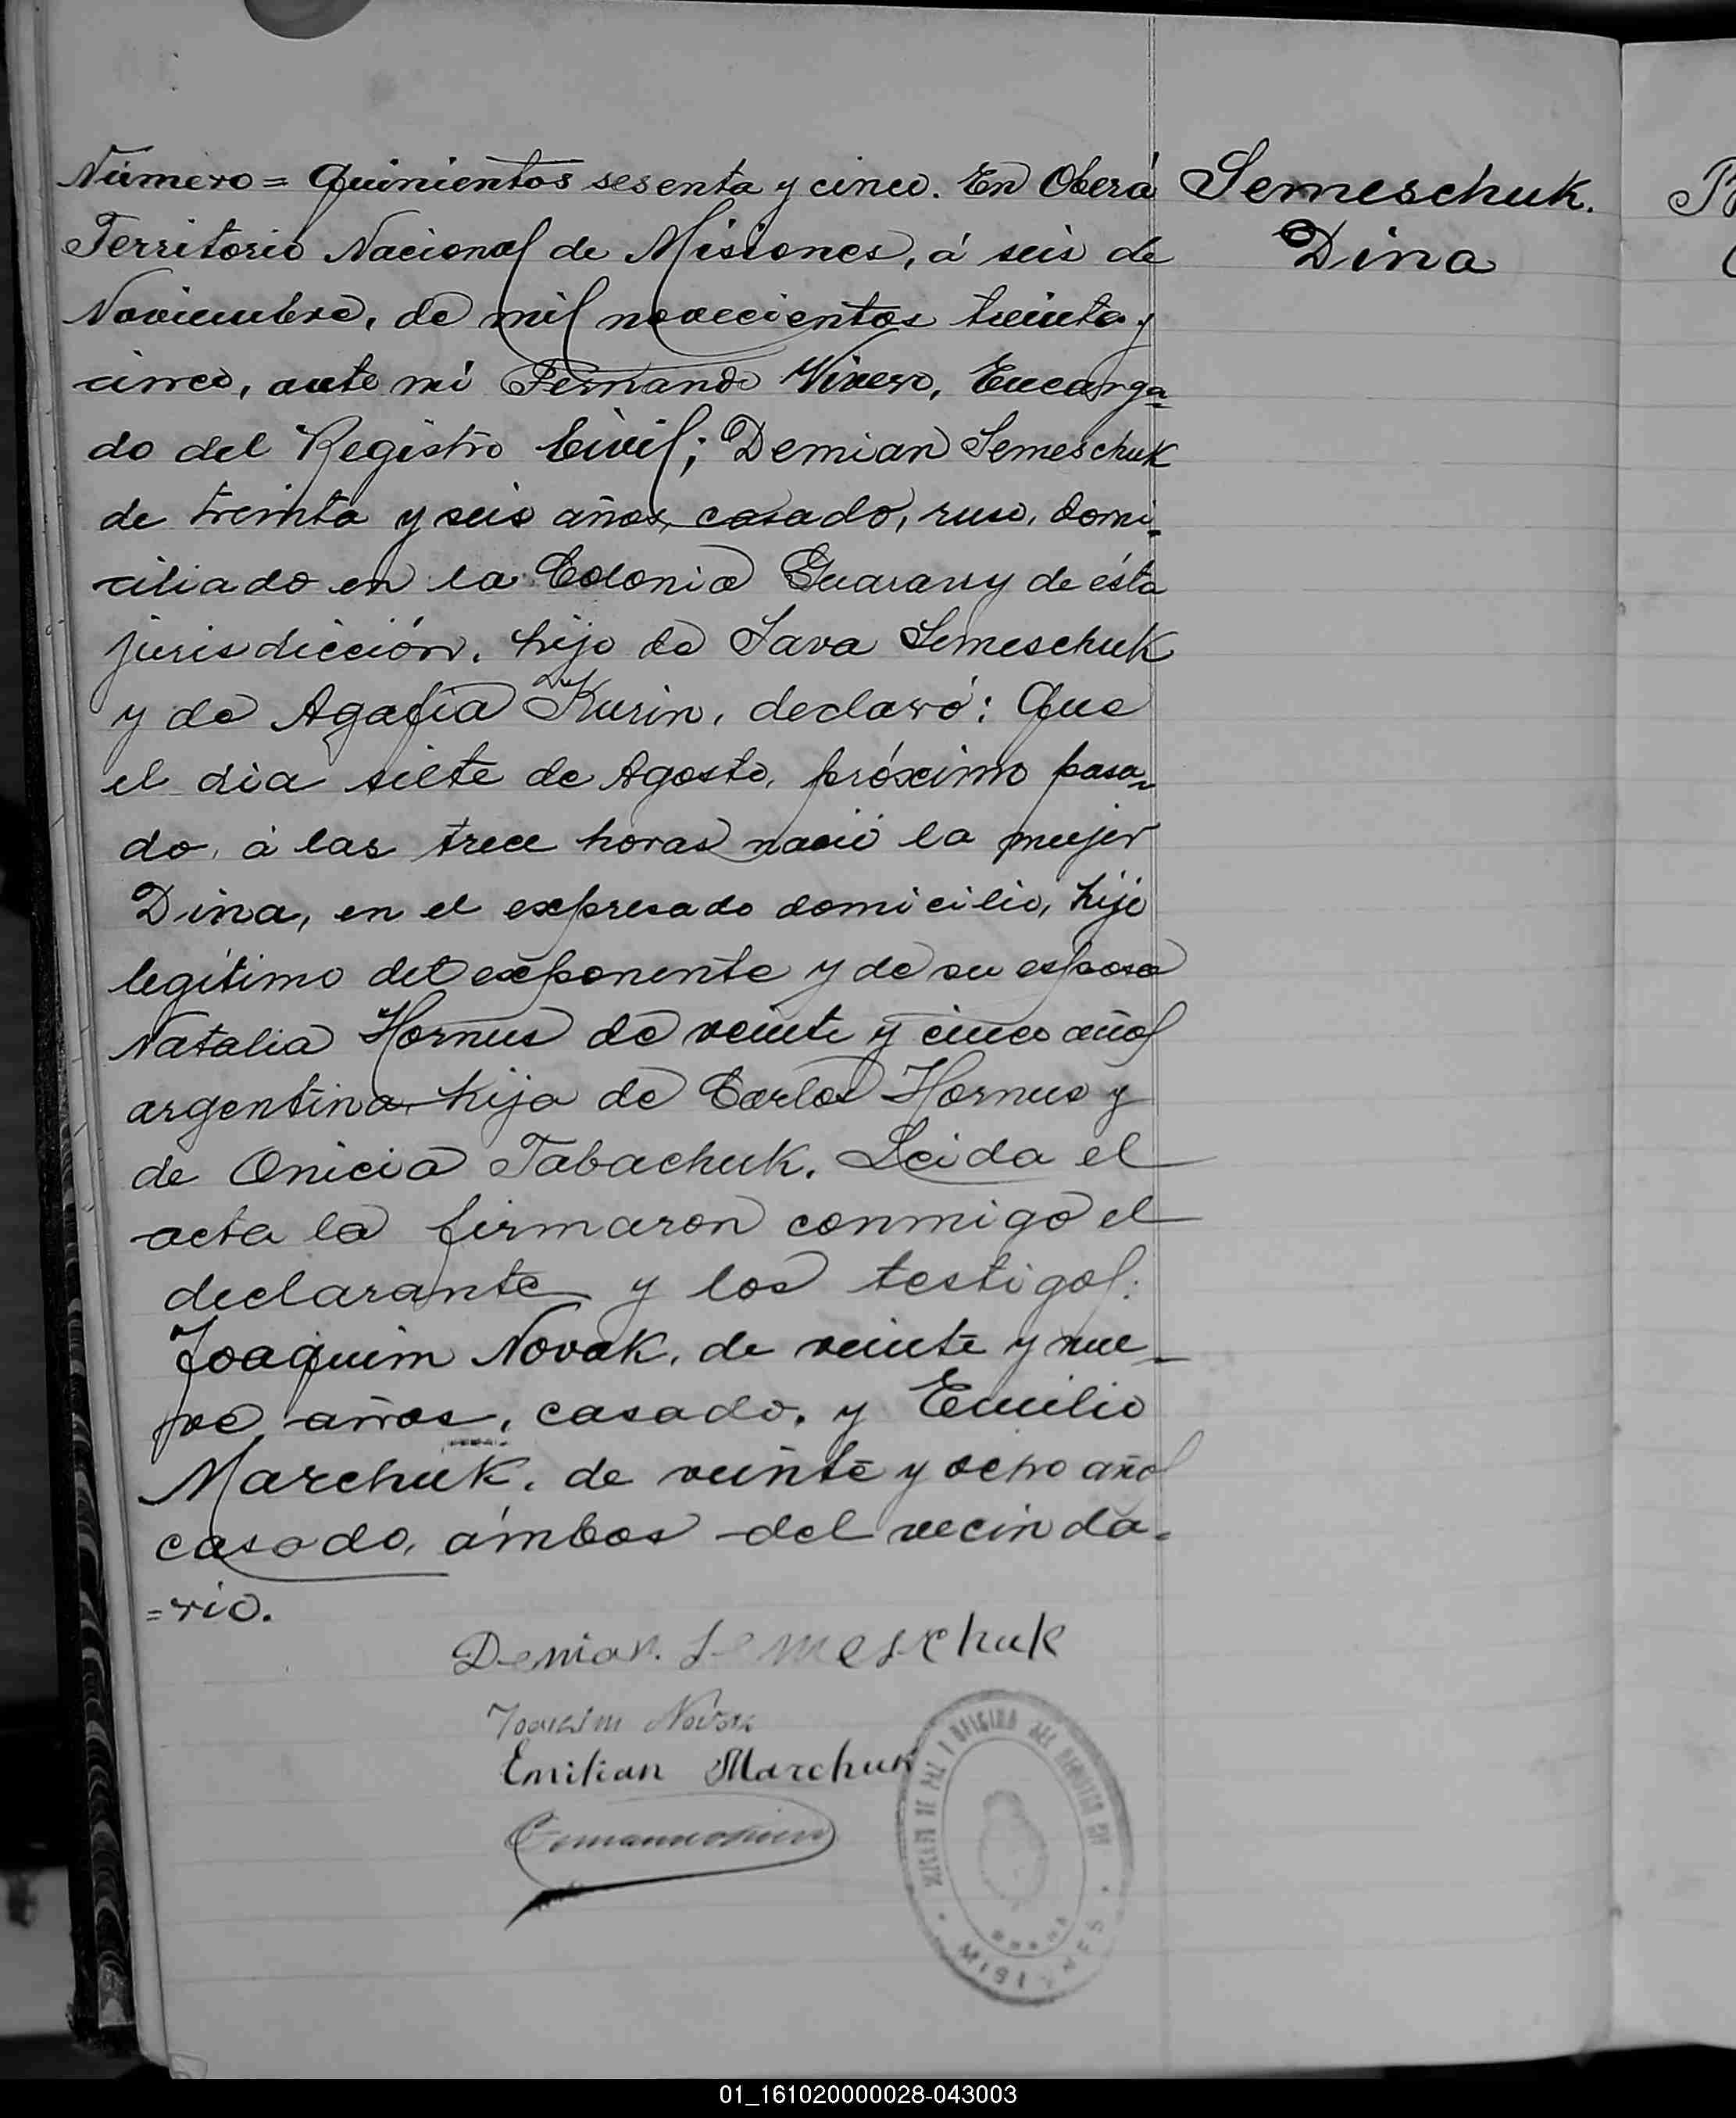 Número = Quinientos sesenta y cinco. En Oberá
Territorio Nacional de Misiones, á seis de
Noviembre, de mil novecientos treinta y
cinco, ante mi Fernando Vivero, Encarga-
do del Registro Civil; Demian Semeschuk
de treinta y seis años, casado, ruso, domi-
ciliado en la Colonia Guarany de ésta
jurisdicción, hijo de Sava Semeschuk
y de Agafia Kurin, declaró: Que
el dia siete de Agosto, próximo pasa-
do, á las trece horas nació la mujer
Dina, en el expresado domicilio, hijo
legitimo del exponente y de su esposa
Natalia Hornus de veinte y cinco años
argentina hija de Carlos Hornus y
de Onicia Tabachuk. Leida el
acta la firmaron conmigo el
declarante y los testigos:
Joaquim Novak, de veinte y nue-
ve años, casado, y Emilio
Marchuk, de veinte y ocho años
casado, ámbos del vecinda=
=rio.
Semeschuk.
Dina
Demian Semeschuk
Novak
Emilian Marchuk
DE PAZ Y OFICINA DEL
MISIONES
01_161020000028-043003